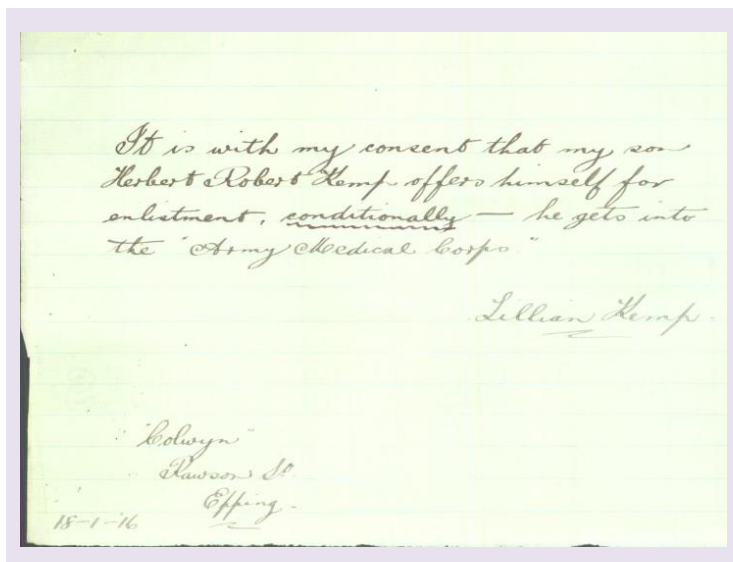 It is with my consent that my son
Herbert Robert Kemp offers himself for
enlistment, conditionally — he gets into
the "Army Medical Corps"
Lillian Kemp.
"Colwyn"
Rawson St.
Epping.
18-1-16